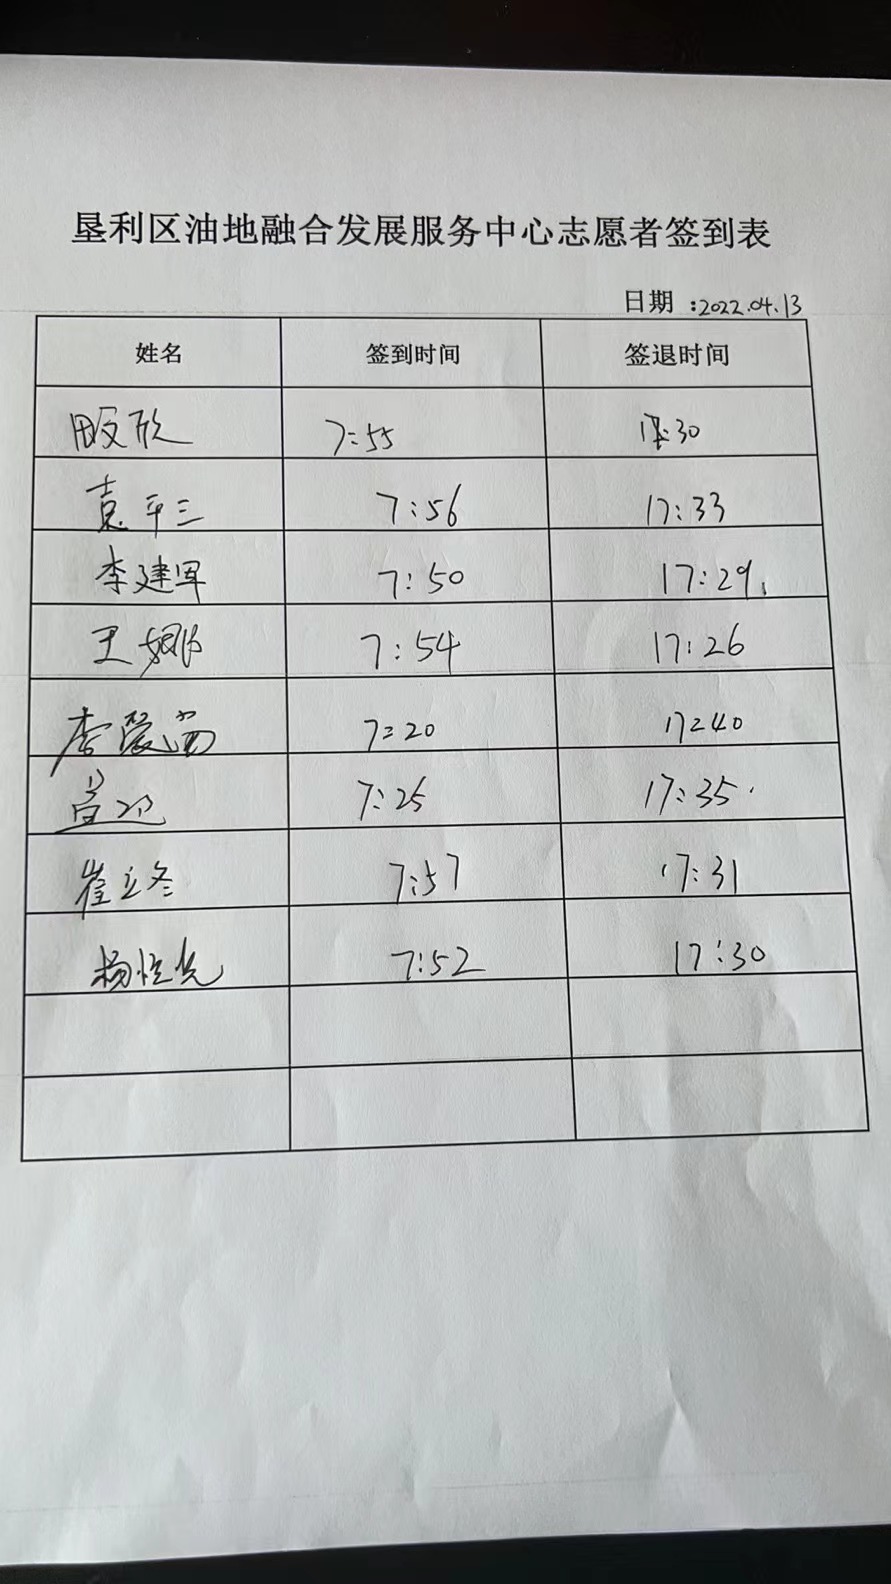 垦利区油地融合发展服务中心志愿者签到表
日期：2022.04.13
姓名 签到时间 签退时间
7:55 17:30
袁平三 7:56 17:33
李建军 7:50 17:29
王娜 7:54 17:26
李 7:20 17:40
7:25 17:35
崔立冬 7:57 17:31
杨恒光 7:52 17:30